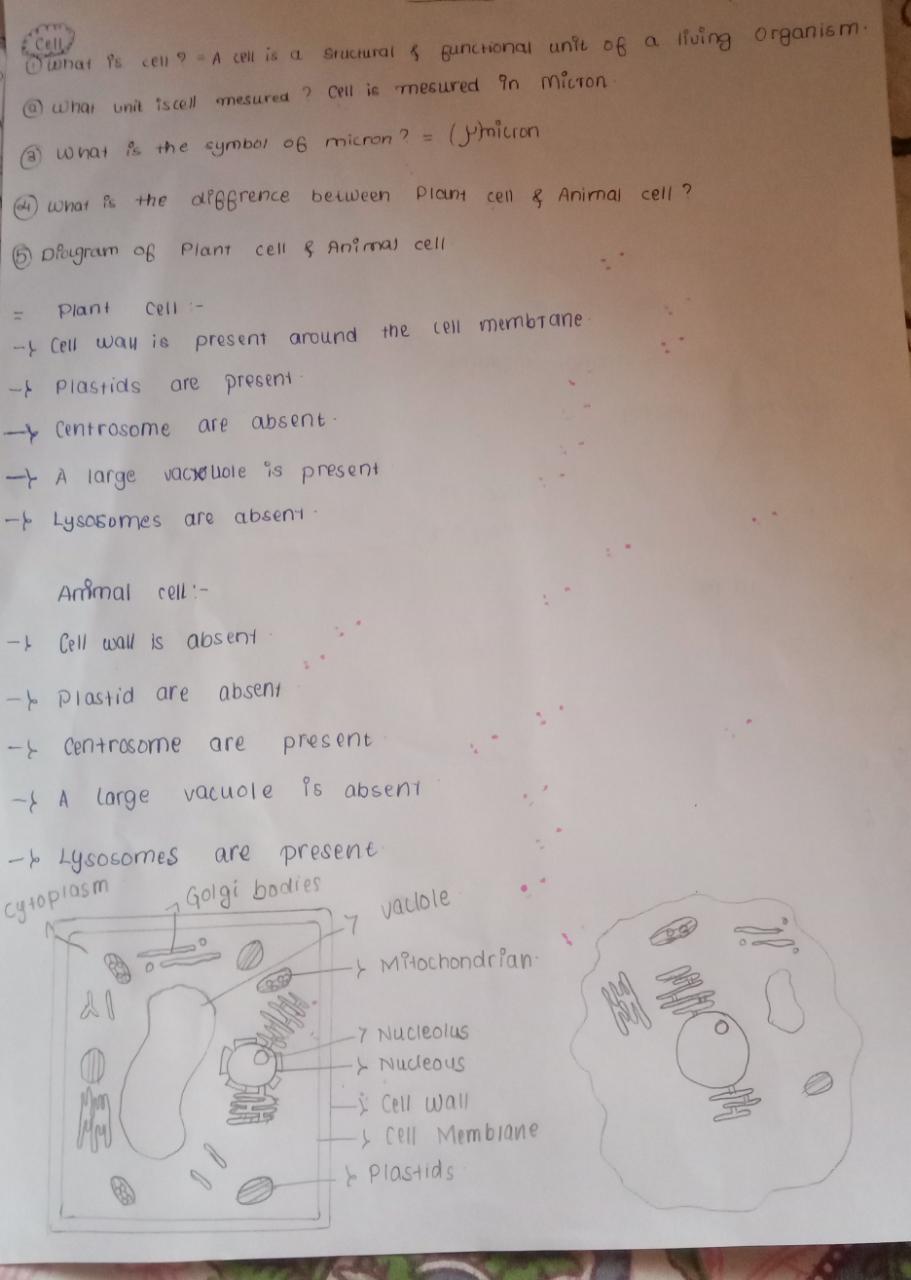 Cell
① What is cell ? = A cell is a sructural & functional unit of a living organism.
② What unit is cell mesured ? Cell is mesured in Micron.
③ What is the symbol of micron ? = (μ) micron
④ What is the diffrence between Plant cell & Animal cell ?
⑤ Diagram of Plant cell & Animal cell
= Plant Cell :-
→ Cell wall is present around the cell membrane
→ Plastids are present
→ Centrosome are absent.
→ A large vacuole is present
→ Lysosomes are absent.
Animal cell :-
→ Cell wall is absent
→ Plastid are absent
→ Centrosome are present
→ A large vacuole is absent
→ Lysosomes are present
Cytoplasm
Golgi bodies
Vaclole
Mitochondrian.
Nucleolus
Nucleous
Cell Wall
Cell Membrane
Plastids